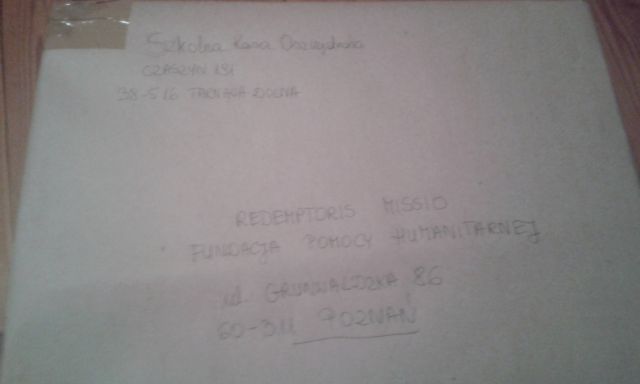 Szkolna Kasa Oszczędności
CZASZYN 181
38-516 TARNAWA DOLNA
REDEMPTORIS MISSIO
FUNDACJA POMOCY HUMANITARNEJ
ul. GRUNWALDZKA 86
60-311 POZNAŃ